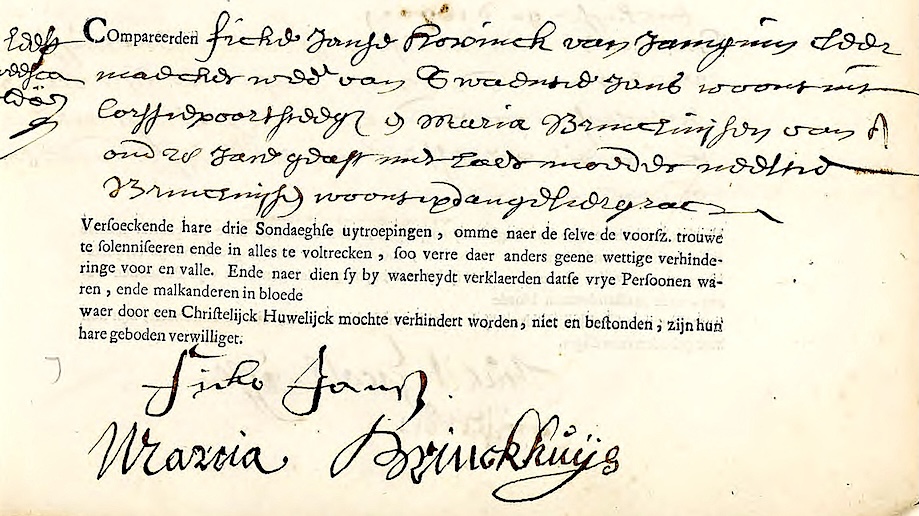 Compareerden ficke Janse Rovinck van Jemgum leer
maecker wedr van Swaentie Jans woont int
& Maria Brinckuijsen van A
oud 28 Jare geast met haer moeder neeltie
Brinckuijs woont op d angeliergrac
Versoeckende hare drie Sondaeghse uytroepingen, omme naer de selve de voorsz. trouwe
te solenniseeren ende in alles te voltrecken, soo verre daer anders geene wettige verhinde-
ringe voor en valle. Ende naer dien sy by waerheydt verklaerden datse vrye Persoonen wa-
ren, ende malkanderen in bloede
waer door een Christelijck Huwelijck mochte verhindert worden, niet en bestonden, zijn hun
hare geboden verwilliget.
ficko Janß
Marria Brinckhuijs